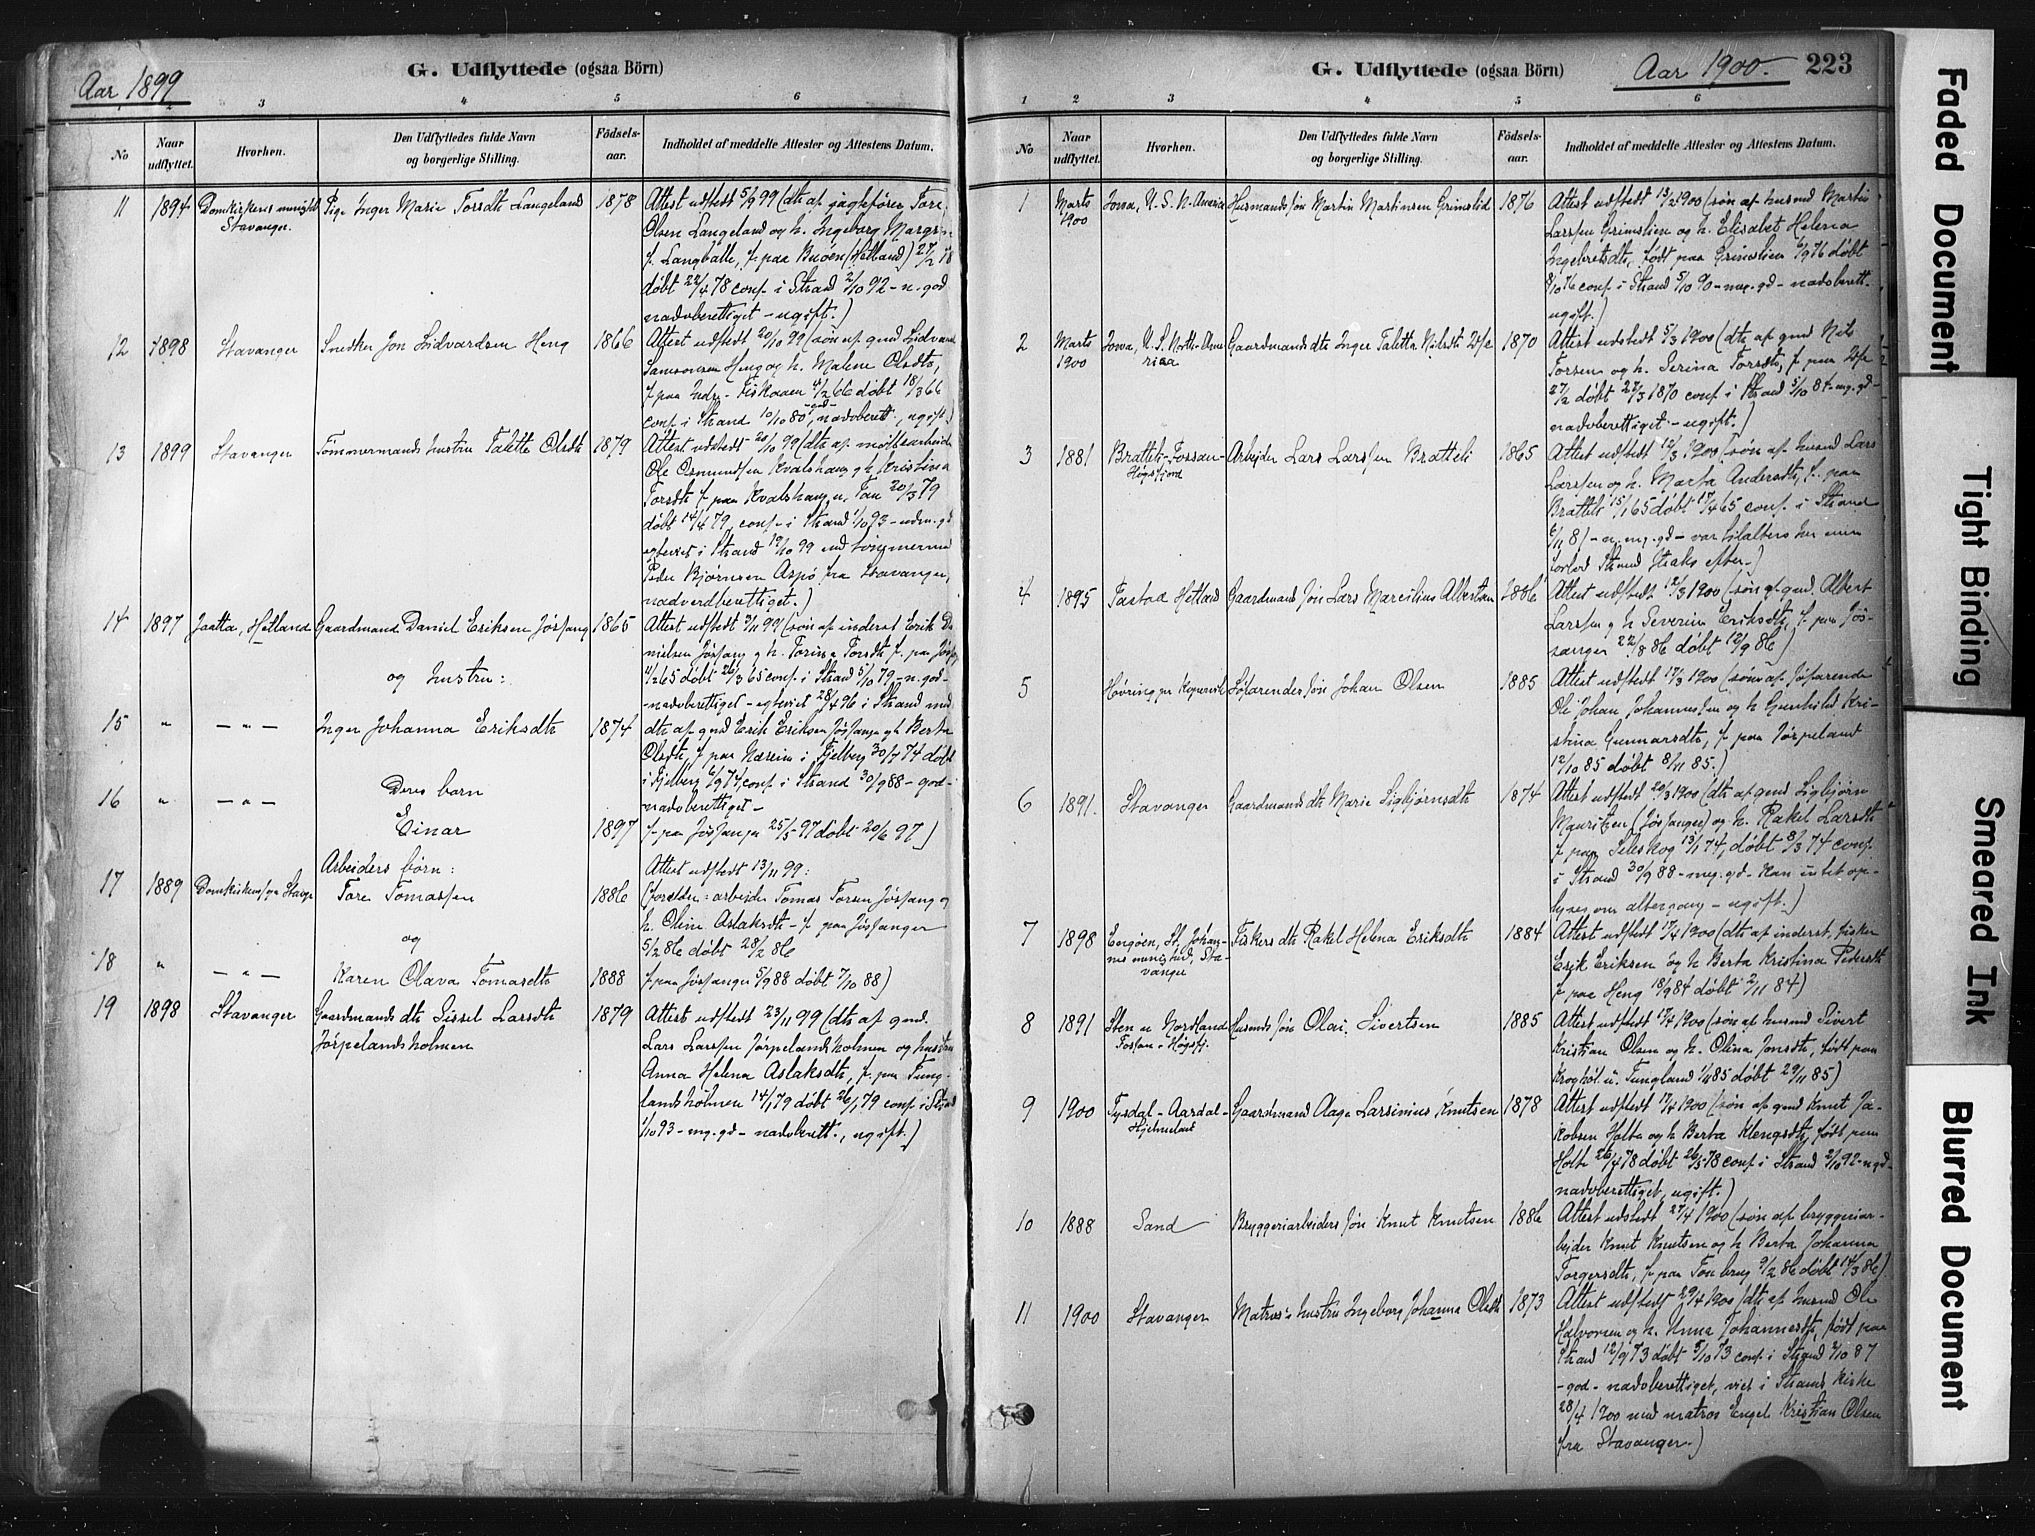 Aar 1899
G. Udflyttede (ogsaa Börn)
3 4 5 6
No
Naar udflyttet.
Hvorhen.
Den Udflyttedes fulde Navn
og borgerlige Stilling.
Födsels-
aar.
Indholdet af meddelte Attester og Attestens Datum.
11 1894 Domkirkens menighed
Stavanger.
Pige Inger Marie Torsdtr Langeland 1878
Attest udstedt 5/9 99 (dtr af jagtefører Tore
Olsen Langeland og h. Ingeborg Margr.
f. paa Buøen (Hetland) 27/2 78
døbt 22/4 78 conf. i Strand 2/10 92 - n. god
nadvberettiget - ugift.)
12 1898 Stavanger Snedker Jon Lidvardsen Heng 1866
Attest udstedt 20/10 99 (søn af gmd Lidvard
Samsonsen Heng og h. Malene Olsdtr,
f. paa Indre Fiskaaen 4/2 66 døbt 18/3 66
conf. i Strand 10/10 80 -god- nadvberett., ugift.)
13 1899 Stavanger Tømmermands hustru Talette Olsdtr 1879
Attest udstedt 20/10 99 (dtr af
Ole Osmundsen Kvalshaug og h. Kristina
Torsdtr f. paa Kvalshaug u. Tau 20/3 79
døbt 14/4 79, conf. i Strand 1/10 93 - udm. gd
egteviet i Strand 19/10 99 med tømmermand
Peder Bjørnsen Aspø fra Stavanger,
nadverdberettiget.)
14 1897 Jaatta, Hetland Gaardmand Daniel Eriksen Jøssang 1865
og hustru:
Attest udstedt 3/11 99 (søn af inderst Erik Da-
nielsen Jøssang og h. Torina Torsdtr f. paa Jøss.
4/2 65 døbt 26/3 65 conf. i Strand 5/10 79 - n. god-
nadvberettiget - egteviet 28/4 96 i Strand med
15 " - " - Inger Johanna Eriksdtr 1874
dtr af gmd Erik Eriksen Jøssang og h. Berta
Olsdtr, f. paa Næreim i Fjelberg 30/7 74 døbt
i Fjelberg 6/9 74, conf. i Strand 30/9 88 - god-
nadvberettiget -
16 " - " - Deres barn
Einar 1897
f. paa Jøssanger 25/5 97 døbt 20/6 97)
17 1889 Arbeiders børn:
Tore Tomassen 1886
Attest udstedt 13/11 99:
(forældre: arbeider Tomas Torsen Jøssang og
h. Oline Aslaksdtr - f. paa Jøssanger
5/2 86 døbt 28/2 86
og
18 " - " - Karen Olava Tomasdtr 1888
f. paa Jøssanger 5/9 88 døbt 7/10 88)
19 1898 Stavanger Gaardmands dtr Sissel Larsdtr 1879
Jørpelandsholmen
Attest udstedt 23/11 99 (dtr af gmd.
Lars Larssen Jørpelandsholmen og hustru
Anna Helena Aslaksdtr, f. paa Tung-
landsholmen 14/1 79 døbt 26/1 79 conf. i Strand
1/10 93 - mg. gd - nadvberett., ugift.)
G. Udflyttede (ogsaa Börn)
Aar 1900.
223
1 2 3 4 5 6
No
Naar
udflyttet.
Hvorhen.
Den Udflyttedes fulde Navn
og borgerlige Stilling.
Födsels-
aar.
Indholdet af meddelte Attester og Attestens Datum.
1 Marts 1900 Iowa, U.S. N. America Husmands søn Martin Martinsen Grimslid 1876
Attest udstedt 13/2 1900 (søn af husmd Martin
Larssen Grimslien og h. Elisabet Helena
Ingebretsdtr, født paa Grimslien 6/9 76 døbt
8/10 76 conf. i Strand 5/10 90 - meg. gd - nadvberett.
ugift.)
2 Marts 1900 Iowa, U.S. North-Ame-
rica
Gaardmands dtr Inger Taletta Nilsdtr 1870
Attest udstedt 5/3 1900 (dtr af gmd Nils
Torsen og h. Serina Torsdtr, f. paa
27/2 døbt 27/3 1870 conf. i Strand 5/10 84 - mg. gd -
nadvberettiget - ugift.)
3 1881 Bratteli - Fossan -
Høgsfjord
Arbejder Lars Larssen Bratteli 1865
Attest udstedt 12/3 1900 (søn af husmd Lars
Larssen og h. Marta Andersdtr, f. paa
Bratteli 15/1 65 døbt 17/4 65 conf. i Strand
- n. mg. gd -
forlod Strand straks efter.)
4 1895 Tastad Hetland Gaardmands søn Lars Marselius Albertsen 1886
Attest udstedt 12/3 1900 (søn af gmd. Albert
Larssen og h. Severin Eriksdtr, f. paa Jøs-
sanger 22/8 86 døbt 12/9 86)
5 Høvring pr Kopervik Søfarendes søn Johan Olsen 1885
Attest udstedt 17/3 1900 (søn af søfarende
Ole Johan Johannessen og h. Gunhild Kri-
stina Gunnarsdtr, f. paa Jørpeland
12/10 85 døbt 8/11 85.)
6 1891. Stavanger Gaardmands dtr Marie Sigbjørnsdtr 1874
Attest udstedt 20/3 1900 (dtr af gmd Sigbjørn
Mauritzen (Jøssanger) og h. Rakel Larsdtr
f. paa Seleskog 13/1 74, døbt 8/3 74 conf.
i Strand 30/9 88 - meg. gd - Kan intet op-
lyses om altergang - ugift.)
7 1898 Engøen, St. Johan-
nes menighed, Sta-
vanger
Fiskers dtr Rakel Helena Eriksdtr 1884
Attest udstedt 17/4 1900 (dtr af inderst, fisker
Erik Eriksen og h. Berta Kristina Pedersdtr
f. paa Heng 18/9 84 døbt 2/11 84)
8 1891 Sten u Nordland
Fossan - Høgsfj.
Husmds søn Olai Sivertsen 1885
Attest udstedt 17/4 1900 (søn af husmd Sivert
Kristian Olsen og h. Olina Jonsdtr, født paa
Kroghøl u. Tungland 1/11 85 døbt 29/11 85)
9 1900 Tysdal - Aardal -
Hjelmeland
Gaardmand Aage Larsinius Knutsen 1878
Attest udstedt 17/4 1900 (søn af gmd Knut Ja-
kobsen Holta og h. Berta Klengsdtr, født paa
Holte 26/4 78 døbt 26/5 78 conf. i Strand 2/10 92 - n gd -
nadvberettiget, ugift.)
10 1888 Sand Bryggeriarbeiders søn Knut Knutsen 1886
Attest udstedt 27/4 1900 (søn af bryggeriar-
bejder Knut Knutsen og h. Berta Johanna
Torgersdtr, f. paa Tou brug 9/2 86 døbt 14/3 86)
11 1900 Stavanger Matros's hustru Ingeborg Johanna Olsdtr 1873
Attest udstedt 29/4 1900 (dtr af husmd Ole
Halvorsen og h. Anna Johannesdtr, født paa
Strand 12/9 73 døbt 5/10 73 conf. i Strand 2/10 87
- god - nadvberettiget, viet i Strand Kirke
28/4 1900 med matros Engel Kristian Olsen
fra Stavanger.)
Faded Document
Tight Binding
Smeared Ink
Blurred Document